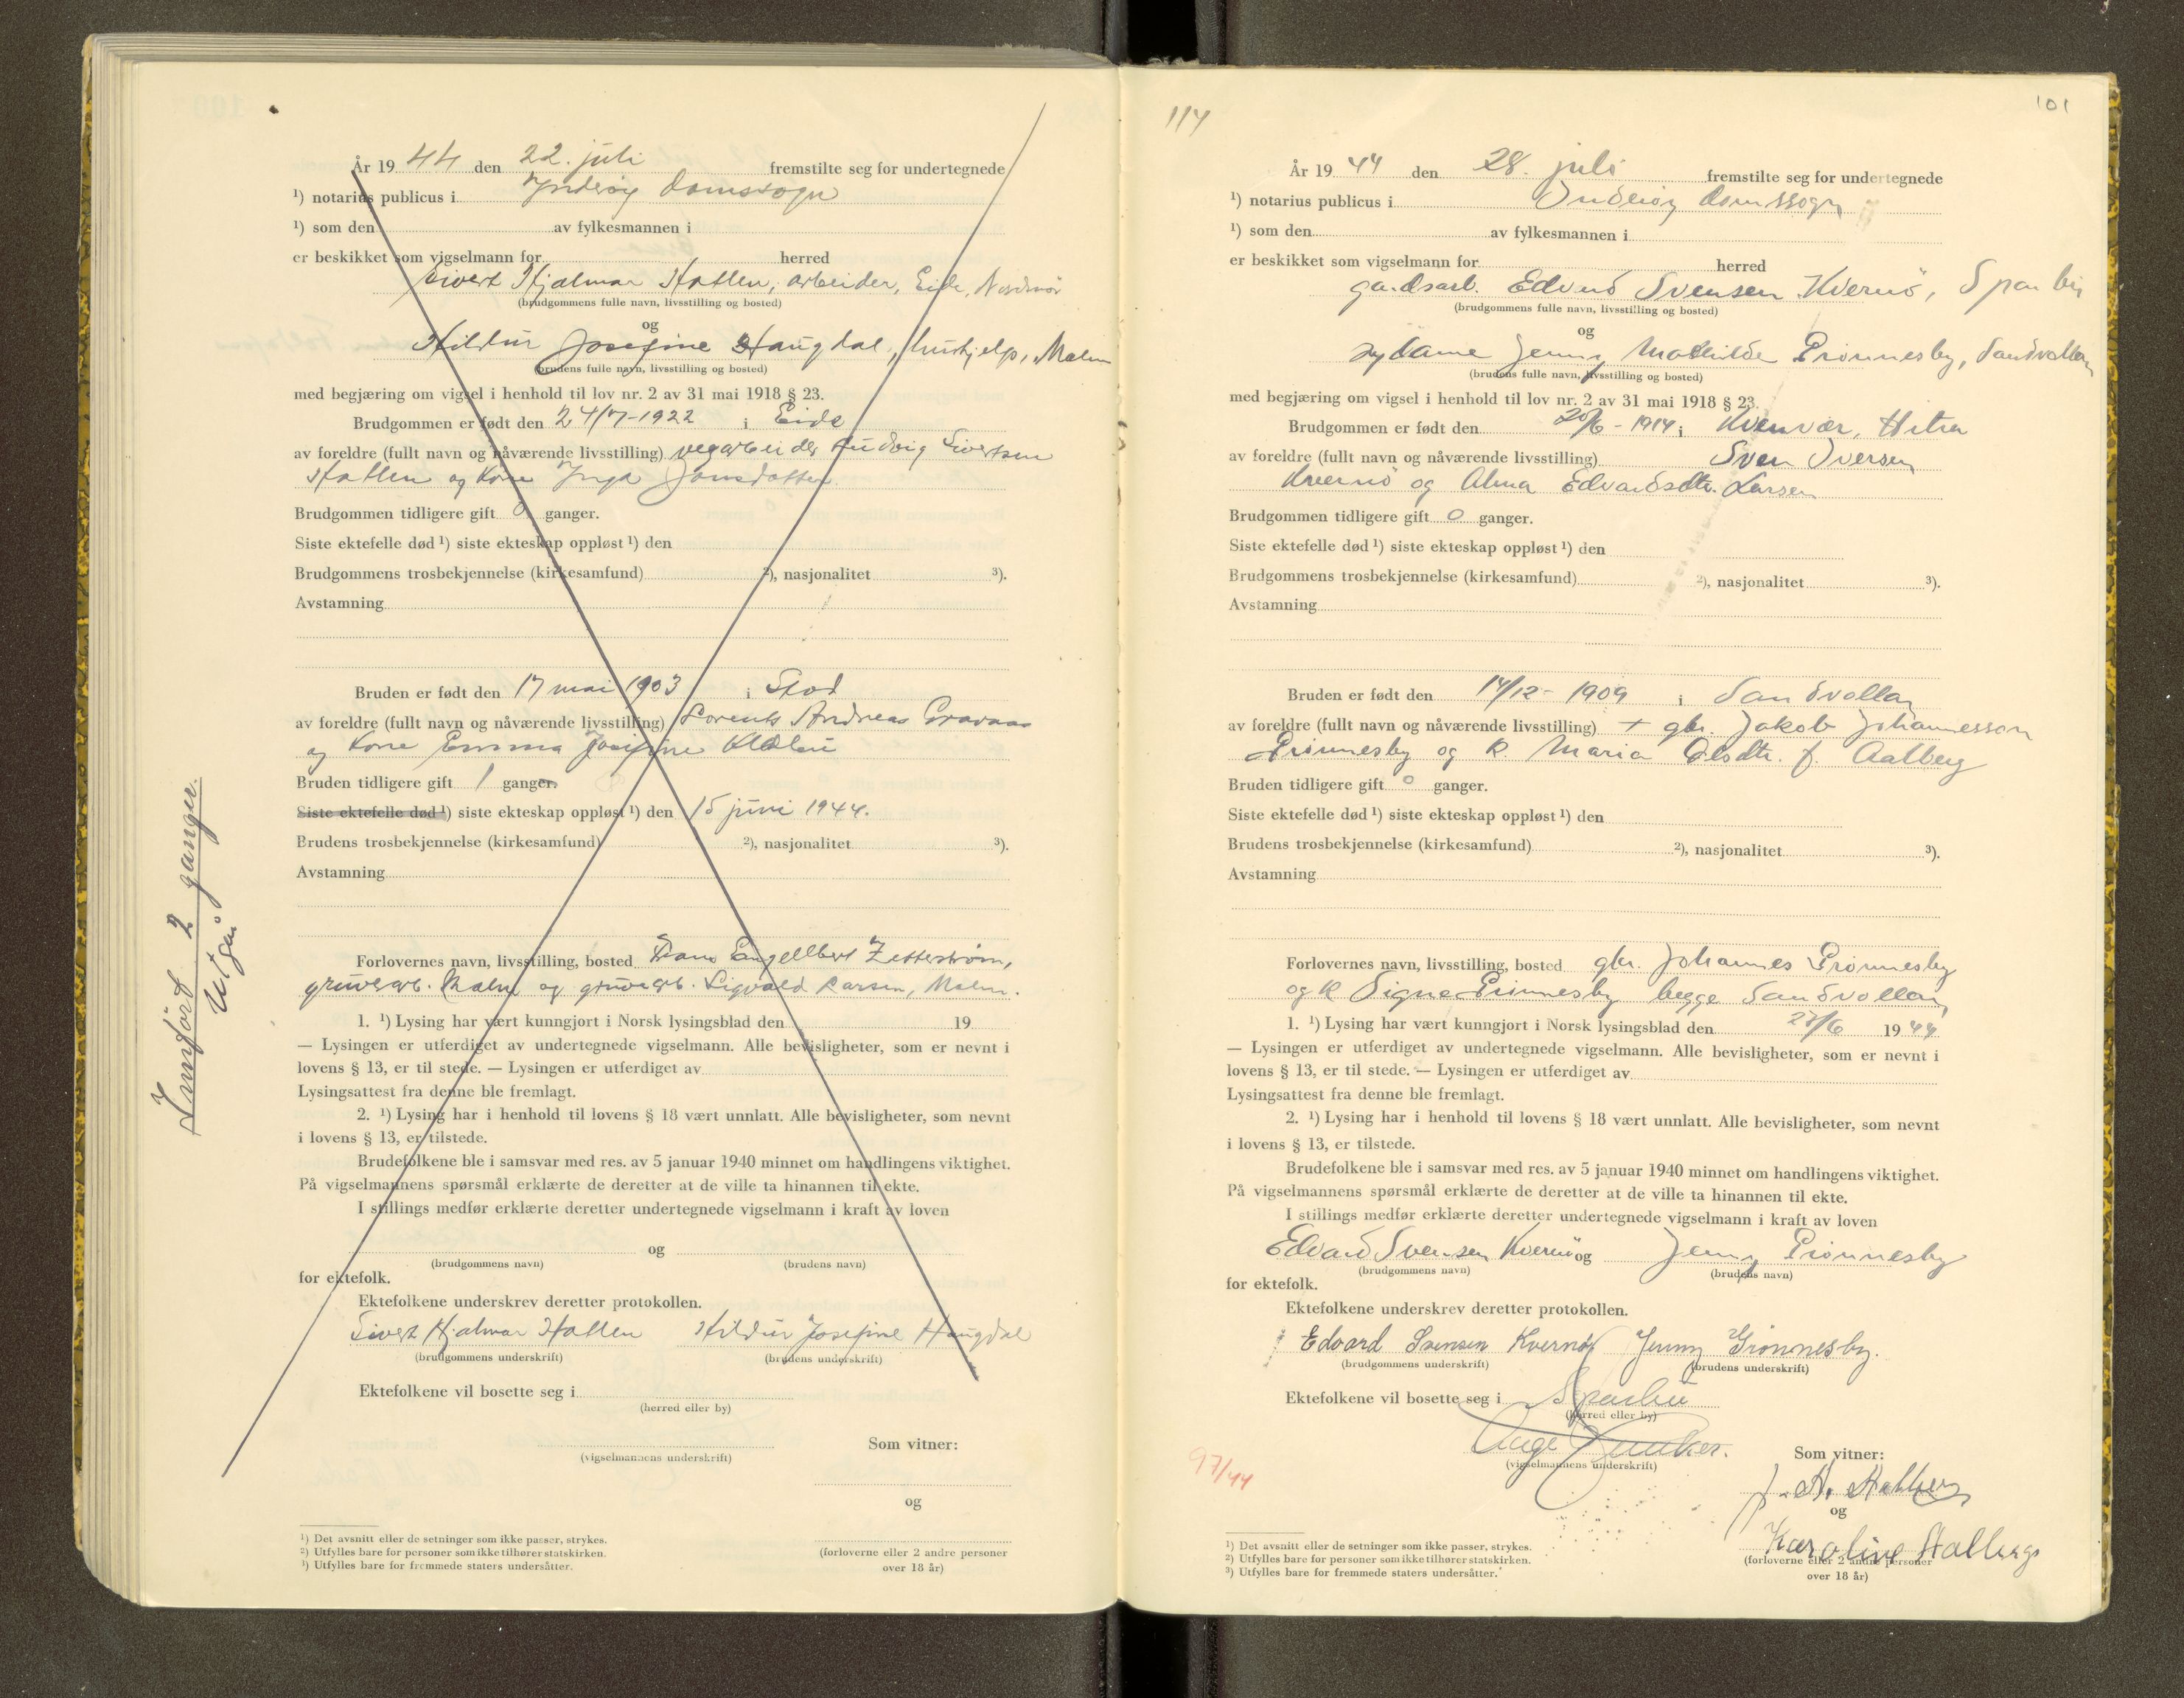 År 19 44 den 22. juli fremstilte seg for undertegnede
¹) notarius publicus i Inderøy domssogn
¹) som den av fylkesmannen i
er beskikket som vigselmann for herred
Sivert Hjalmar Hatlen, arbeider, Eide, Nordmør
(brudgommens fulle navn, livsstilling og bosted)
og
Hildur Josefine Haugdal, hushjelp, Malm
(brudens fulle navn, livsstilling og bosted)
med begjæring om vigsel i henhold til lov nr. 2 av 31 mai 1918 § 23.
Brudgommen er født den 24/7-1922 i Eide
av foreldre (fullt navn og nåværende livsstilling) vegarbeider Ludvig Sivertsen
Hatlen og kone Inga Jonsdatter
Brudgommen tidligere gift 0 ganger.
Siste ektefelle død ¹) siste ekteskap oppløst ¹) den
Brudgommens trosbekjennelse (kirkesamfund) ²), nasjonalitet ³).
Avstamning
Bruden er født den 17 mai 1903 i Stod
av foreldre (fullt navn og nåværende livsstilling) Lorents Andreas
og kone Emma Josefine
Bruden tidligere gift 1 ganger.
Siste ektefelle død ¹) siste ekteskap oppløst ¹) den 15 juni 1944.
Brudens trosbekjennelse (kirkesamfund) ²), nasjonalitet ³).
Avstamning
Forlovernes navn, livsstilling, bosted Hans Engellbert Zetterstrøm,
gruvearb. Malm og gruvearb. Sigvald Larsen, Malm.
1. ¹) Lysing har vært kunngjort i Norsk lysingsblad den 19
— Lysingen er utferdiget av undertegnede vigselmann. Alle bevisligheter, som er nevnt i
lovens § 13, er til stede. — Lysingen er utferdiget av
Lysingsattest fra denne ble fremlagt.
2. ¹) Lysing har i henhold til lovens § 18 vært unnlatt. Alle bevisligheter, som nevnt
i lovens § 13, er tilstede.
Brudefolkene ble i samsvar med res. av 5 januar 1940 minnet om handlingens viktighet.
På vigselmannens spørsmål erklærte de deretter at de ville ta hinannen til ekte.
I stillings medfør erklærte deretter undertegnede vigselmann i kraft av loven
og
(brudgommens navn) (brudens navn)
for ektefolk.
Ektefolkene underskrev deretter protokollen.
Sivert Hjalmar Hatlen Hildur Josefine Haugdal
(brudgommens underskrift) (brudens underskrift)
Ektefolkene vil bosette seg i
(herred eller by)
Som vitner:
(vigselmannens underskrift)
og
¹) Det avsnitt eller de setninger som ikke passer, strykes.
²) Utfylles bare for personer som ikke tilhører statskirken.
³) Utfylles bare for fremmede staters undersåtter.
(forloverne eller 2 andre personer
over 18 år)
Innført 2 ganger.
Utgår
114
101
År 19 44 den 28. juli fremstilte seg for undertegnede
¹) notarius publicus i Inderøy domssogn
¹) som den av fylkesmannen i
er beskikket som vigselmann for herred
gardsarb. Edvard Svensen Kvernø, Sparbu
(brudgommens fulle navn, livsstilling og bosted)
og
sydame Jenny Mathilde Grønnesby, Sandvollan
(brudens fulle navn, livsstilling og bosted)
med begjæring om vigsel i henhold til lov nr. 2 av 31 mai 1918 § 23.
Brudgommen er født den 20/6 - 1914 i Kvenvær, Hitra
av foreldre (fullt navn og nåværende livsstilling) Sven Iversen
Kvernø og Alma Edvardsdtr. Larsen
Brudgommen tidligere gift 0 ganger.
Siste ektefelle død ¹) siste ekteskap oppløst ¹) den
Brudgommens trosbekjennelse (kirkesamfund) ²), nasjonalitet ³).
Avstamning
Bruden er født den 14/12 - 1909 i Sandvollan
av foreldre (fullt navn og nåværende livsstilling) + gbr. Jakob Johannesson
Grønnesby og k. Maria Olsdtr. f. Aalberg
Bruden tidligere gift 0 ganger.
Siste ektefelle død ¹) siste ekteskap oppløst ¹) den
Brudens trosbekjennelse (kirkesamfund) ²), nasjonalitet ³).
Avstamning
Forlovernes navn, livsstilling, bosted gbr. Johannes Grønnesby
og k Signe Grønnesby begge Sandvollan,
1. ¹) Lysing har vært kunngjort i Norsk lysingsblad den 27/6 19 44
— Lysingen er utferdiget av undertegnede vigselmann. Alle bevisligheter, som er nevnt i
lovens § 13, er til stede. — Lysingen er utferdiget av
Lysingsattest fra denne ble fremlagt.
2. ¹) Lysing har i henhold til lovens § 18 vært unnlatt. Alle bevisligheter, som nevnt
i lovens § 13, er tilstede.
Brudefolkene ble i samsvar med res. av 5 januar 1940 minnet om handlingens viktighet.
På vigselmannens spørsmål erklærte de deretter at de ville ta hinannen til ekte.
I stillings medfør erklærte deretter undertegnede vigselmann i kraft av loven
Edvard Svensen Kvernø og Jenny Grønnesby
(brudgommens navn) (brudens navn)
for ektefolk.
Ektefolkene underskrev deretter protokollen.
Edvard Svensen Kvernø Jenny Grønnesby.
(brudgommens underskrift) (brudens underskrift)
Ektefolkene vil bosette seg i Sparbu
(herred eller by)
Aage
(vigselmannens underskrift)
Som vitner:
97/44
J. A. Aalberg
og
Karoline Aalberg
(forloverne eller 2 andre personer
over 18 år)
¹) Det avsnitt eller de setninger som ikke passer, strykes.
²) Utfylles bare for personer som ikke tilhører statskirken.
³) Utfylles bare for fremmede staters undersåtter.